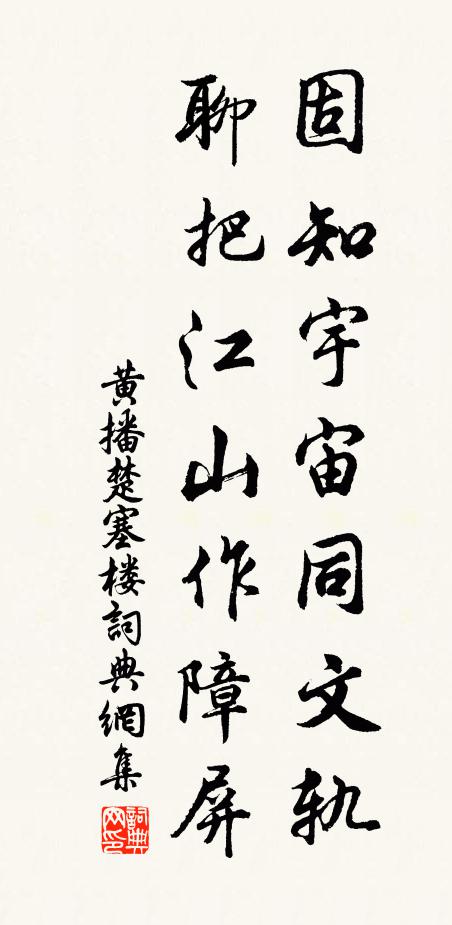 固知宇宙同文軌
聊把江山作障屏
黄播楚塞楼詞典網集
詞典網印